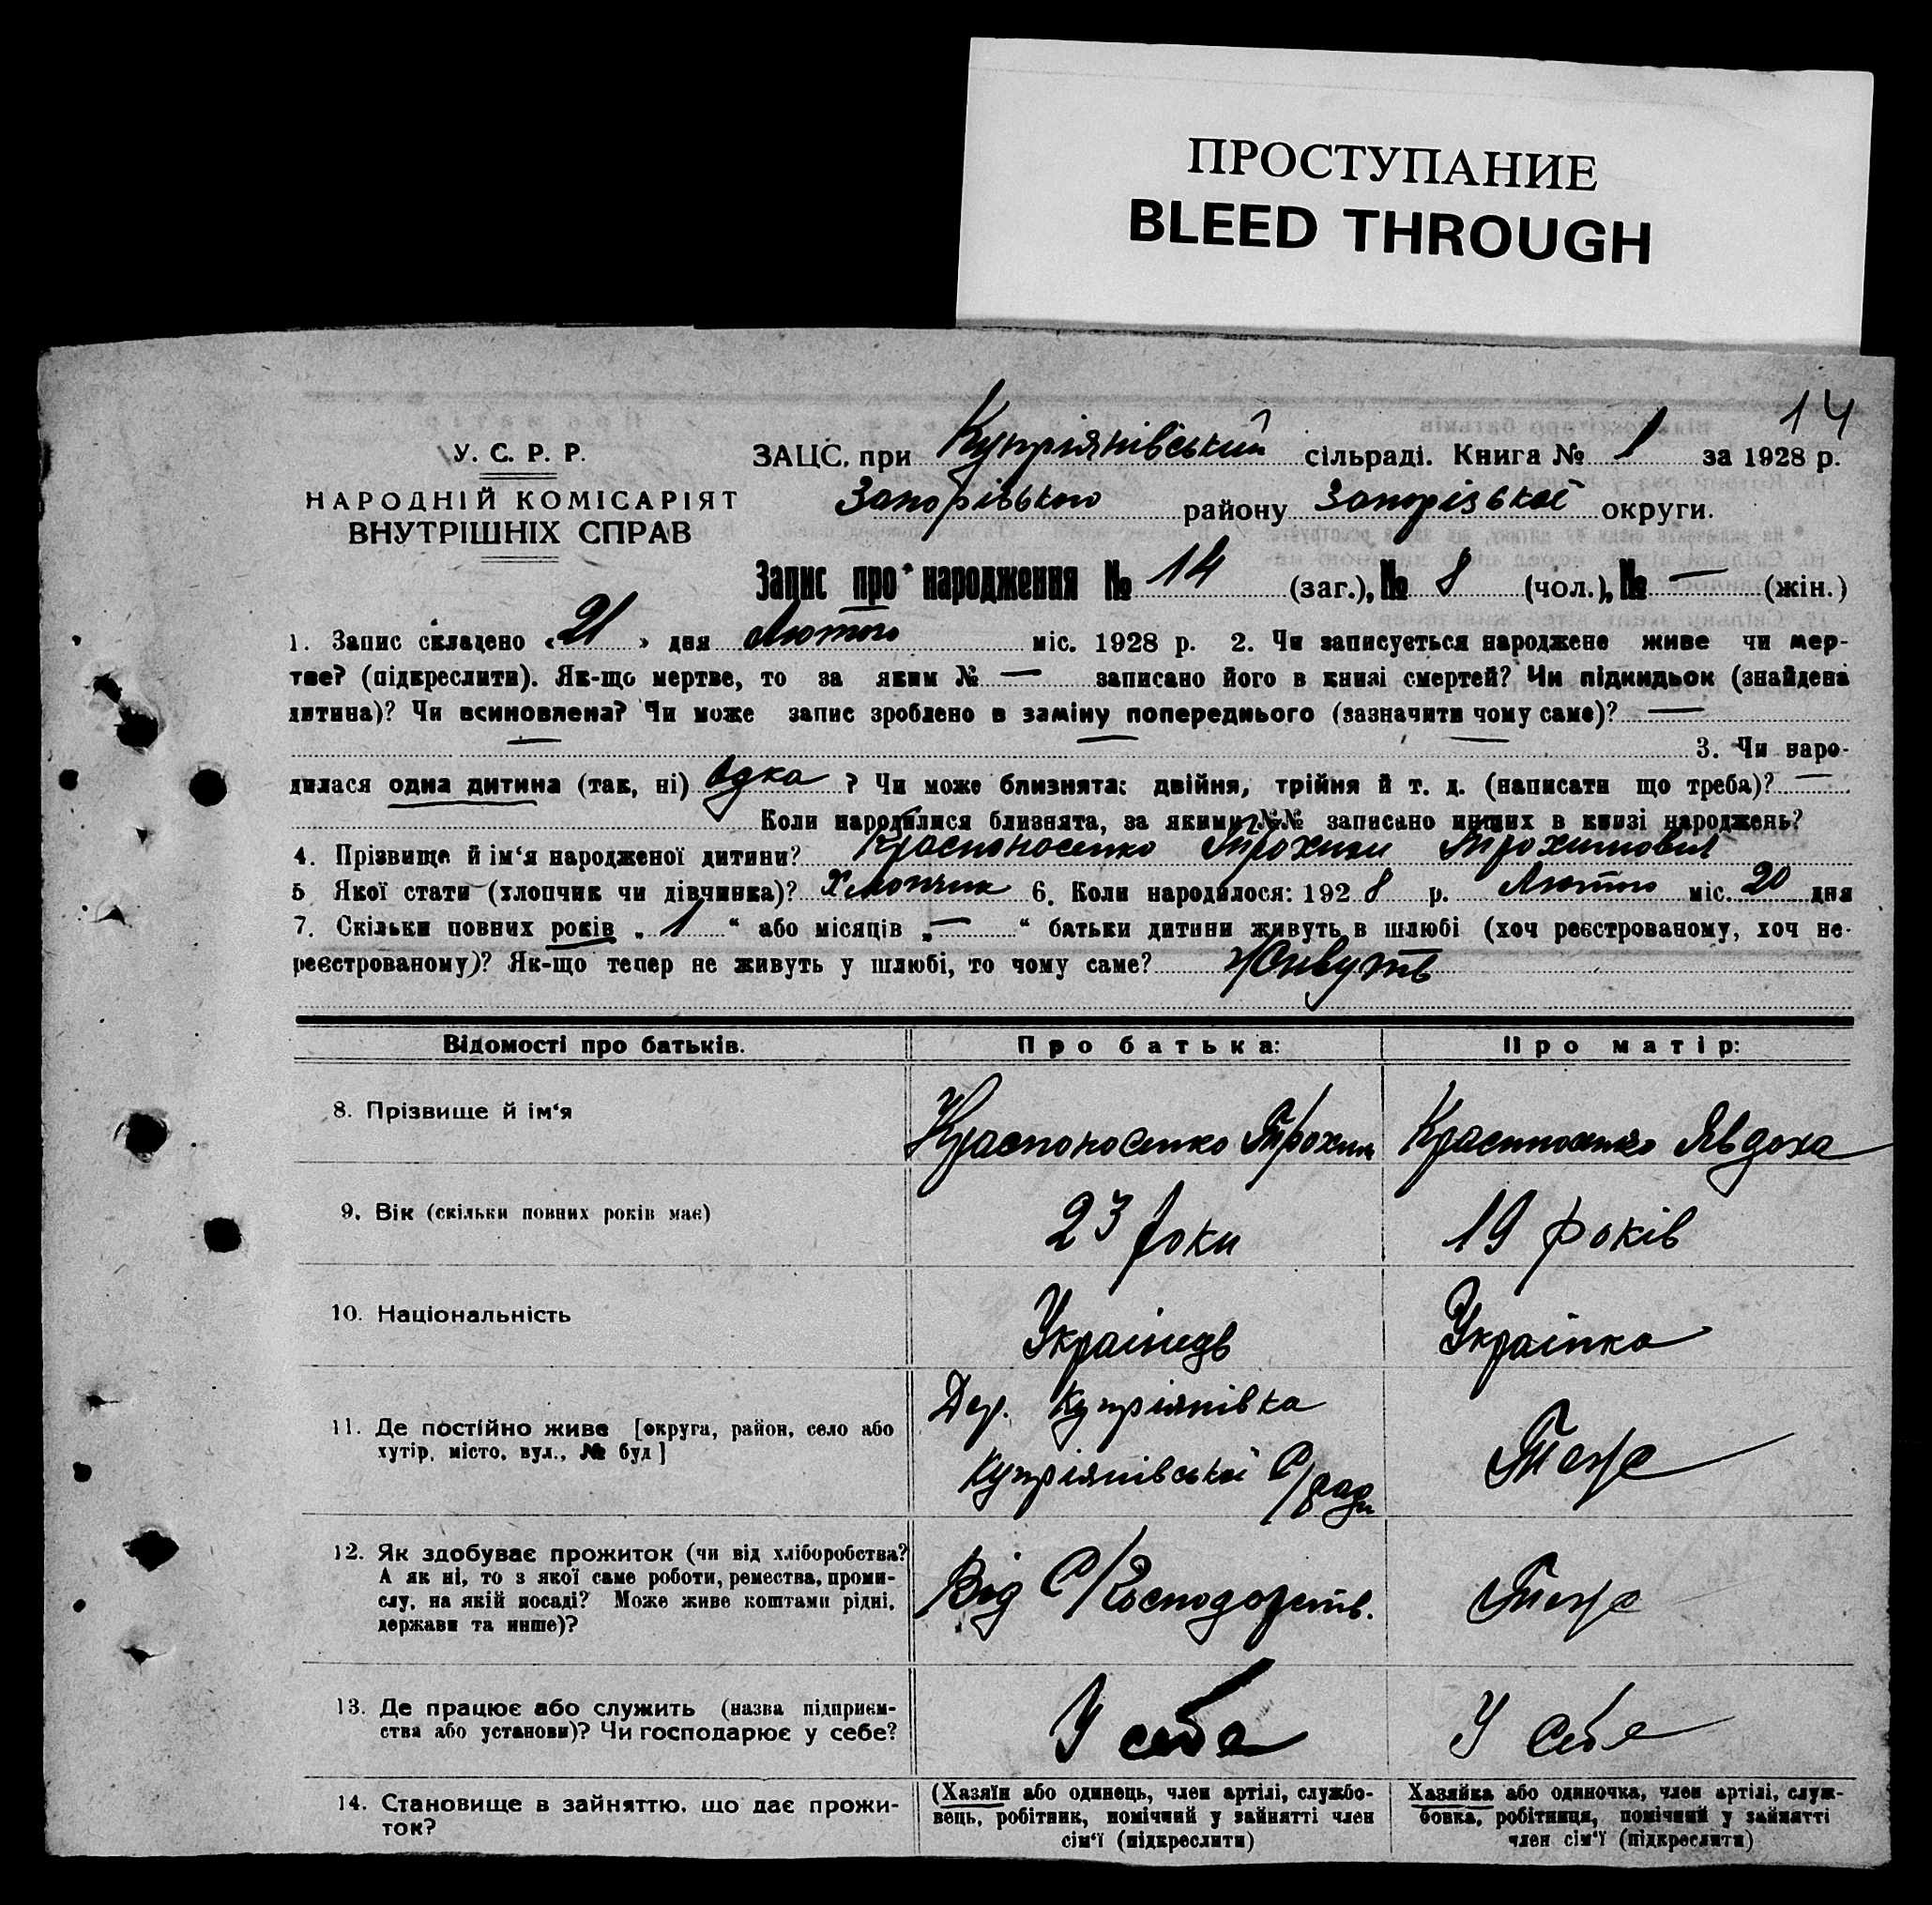 ПРОСТУПАНИЕ
BLEED THROUGH
14
У. С. Р. Р.
НАРОДНІЙ КОМІСАРІЯТ
ВНУТРІШНІХ СПРАВ
ЗАЦС. при Купріянівський сільраді. Книга № 1 за 1928 р.
Запорізького району Запорізької округи.
Запис про народження № 14 (заг.), № 8 (чол.), № — (жін.)
1. Запис складено «21» дня Лютого міс. 1928 р. 2. Чи записується народжене живе чи мер-
тве? (підкреслити). Як-що мертве, то за яким № — записано його в книзі смертей? Чи підкидьок (знайдена
дитина)? Чи всиновлена? Чи може запис зроблено в заміну попереднього (зазначити чому саме)? —
— — — 3. Чи наро-
дилася одна дитина (так, ні) одна ? Чи може близнята: двійня, трійня й т. д. (написати що треба)? —
Коли народилися близнята, за якими №№ записано инших в книзі народжень?
4. Прізвище й ім‘я народженої дитини? Красноносенко Трохим Трохимович
5 Якої стати (хлопчик чи дівчинка)? Хлопчик 6. Коли народилося: 1928 р. Лютого міс. 20 дня
7. Скільки повних років „ 1 “ або місяців „ — “ батьки дитини живуть в шлюбі (хоч реєстрованому, хоч не-
реєстрованому)? Як-що тепер не живуть у шлюбі, то чому саме? Живуть
Відомості про батьків. Про батька: Про матір:
8. Прізвище й ім‘я Красноносенко Трохим Красноносенко Явдоха
9. Вік (скільки повних років має) 23 роки 19 років
10. Національність Українець Українка
11. Де постійно живе [округа, район, село або
хутір, місто, вул., № буд]
Дер. Купріянівка
Купріянівської С/ради
Теж
12. Як здобуває прожиток (чи від хліборобства?
А як ні, то з якої саме роботи, ремества, проми-
слу, на якій посаді? Може живе коштами рідні,
держави та инше)?
Від С/Господорств.
Теж
13. Де працює або служить (назва підприєм-
ства або установи)? Чи господарює у себе?
У себе
У себе
14. Становище в зайняттю, що дає прожи-
ток?
(Хазяїн або одинець, член артілі, службо-
вець, робітник, помічний у зайнятті член
сім‘ї (підкреслити)
Хазяйка або одиночка, член артілі, служ-
бовка, робітниця, помічний у зайнятті
член сім‘ї (підкреслити)